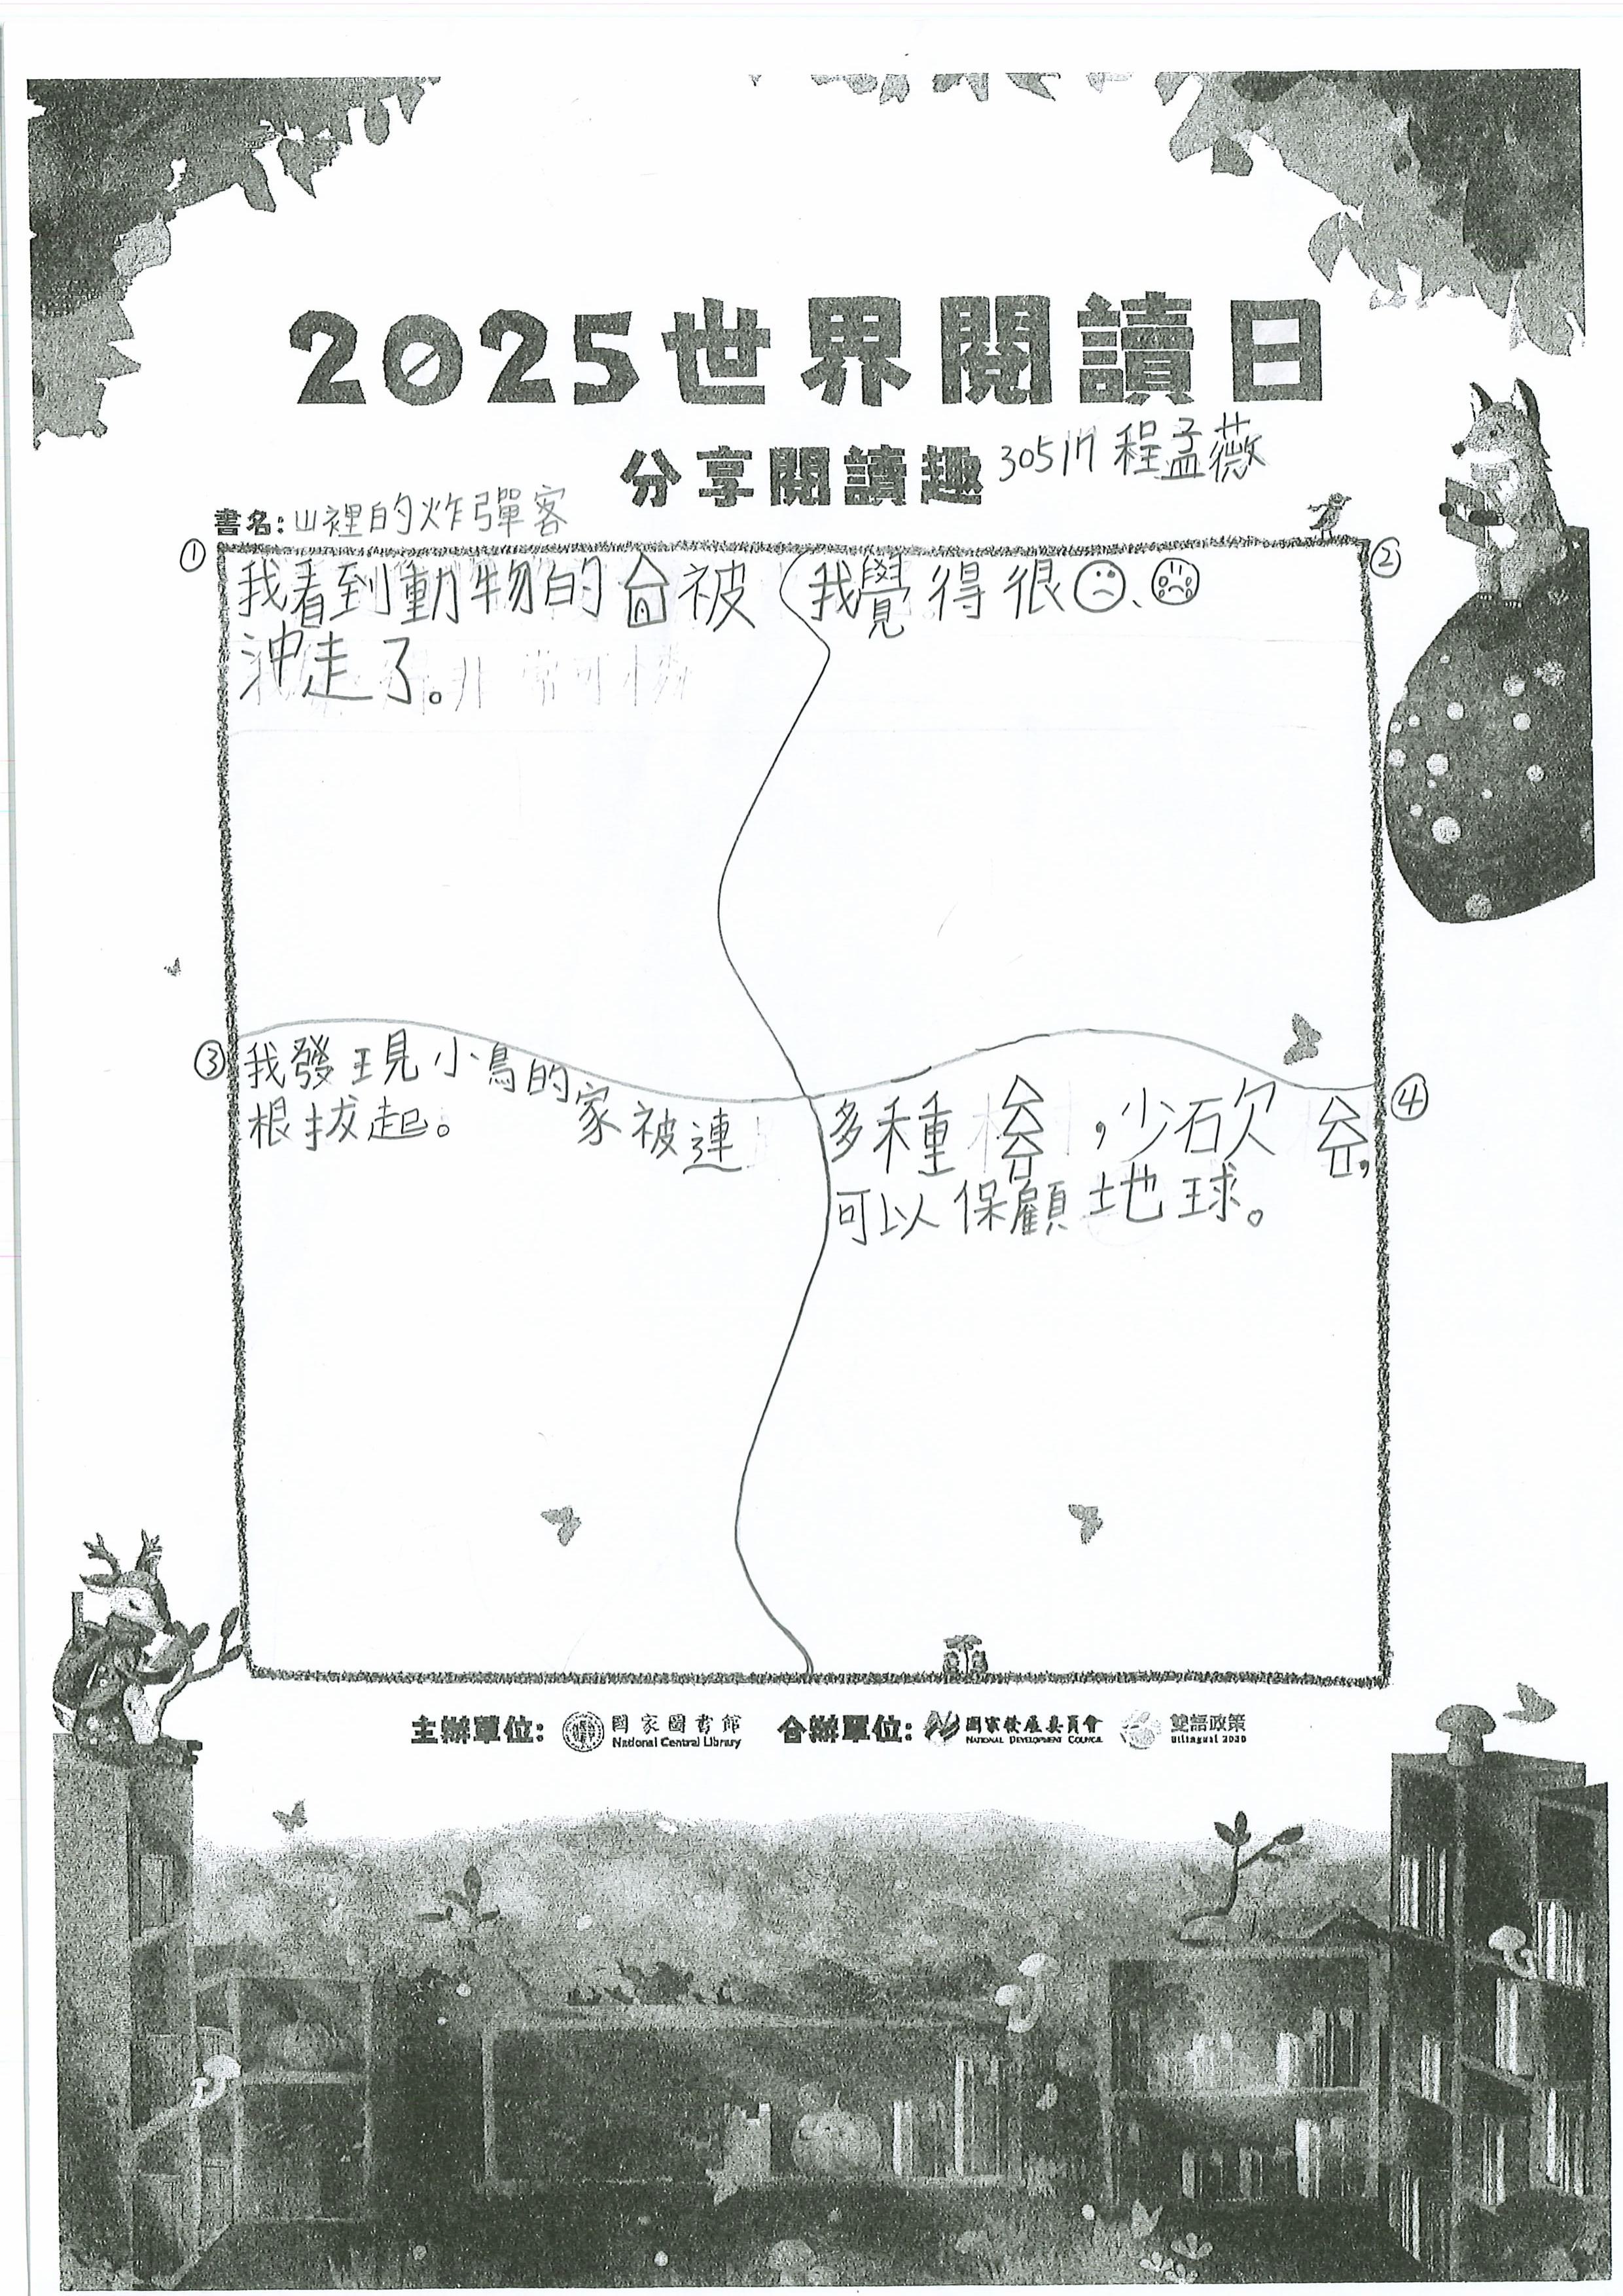 2025世界閱讀日
分享閱讀趣 30517 程孟薇
書名:山裡的炸彈客
① ②
我看到動物的被
沖走了。
我覺得很、
③ ④
我發現小鳥的家被連
根拔起。
多種,少砍,
可以保顧地球。
主辦單位: 國家圖書館 合辦單位: 國家發展委員會 雙語政策
National Central Library NATIONAL DEVELOPMENT COUNCIL Bilingual 2030